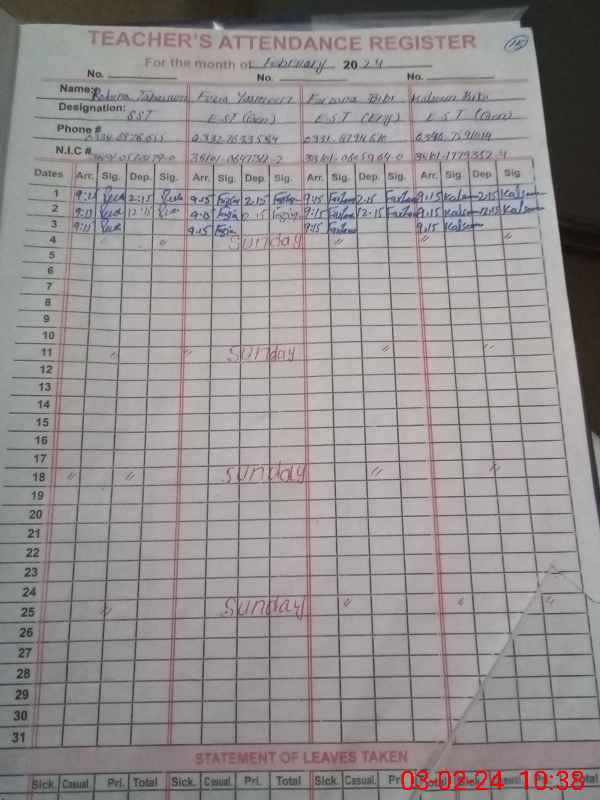 15
TEACHER'S ATTENDANCE REGISTER
For the month of February 2024
No. No. No.
Name: Fozia Yasmeen Farzana Bibi Kalsoom Bibi
Designation: SST E.S.T (Gen) E.S.T (Eng) E.S.T (Gen)
Phone #
N.I.C #
Dates Arr. Sig. Dep. Sig. Arr. Sig. Dep. Sig. Arr. Sig. Dep. Sig. Arr. Sig. Dep. Sig.
1 9:15 2:15 9:15 Fozia 2:15 Fozia 9:15 Farzana 2:15 Farzana 9:15 Kalsoom 2:15 Kalsoom
2 9:15 12:15 9:15 Fozia 12:15 Fozia 9:15 Farzana 12:15 Farzana 9:15 Kalsoom 12:15 Kalsoom
3 9:15 9:15 Fozia 9:15 Farzana 9:15 Kalsoom
4 " " Sunday " " "
5
6
7
8
9
10
11 " " Sunday " "
12
13
14
15
16
17
18 " " Sunday " "
19
20
21
22
23
24
25 " Sunday " " "
26
27
28
29
30
31
STATEMENT OF LEAVES TAKEN
Sick. Casual. Pri. Total Sick. Casual. Pri. Total Sick. Casual. Pri. Total
03-02-24 10:38